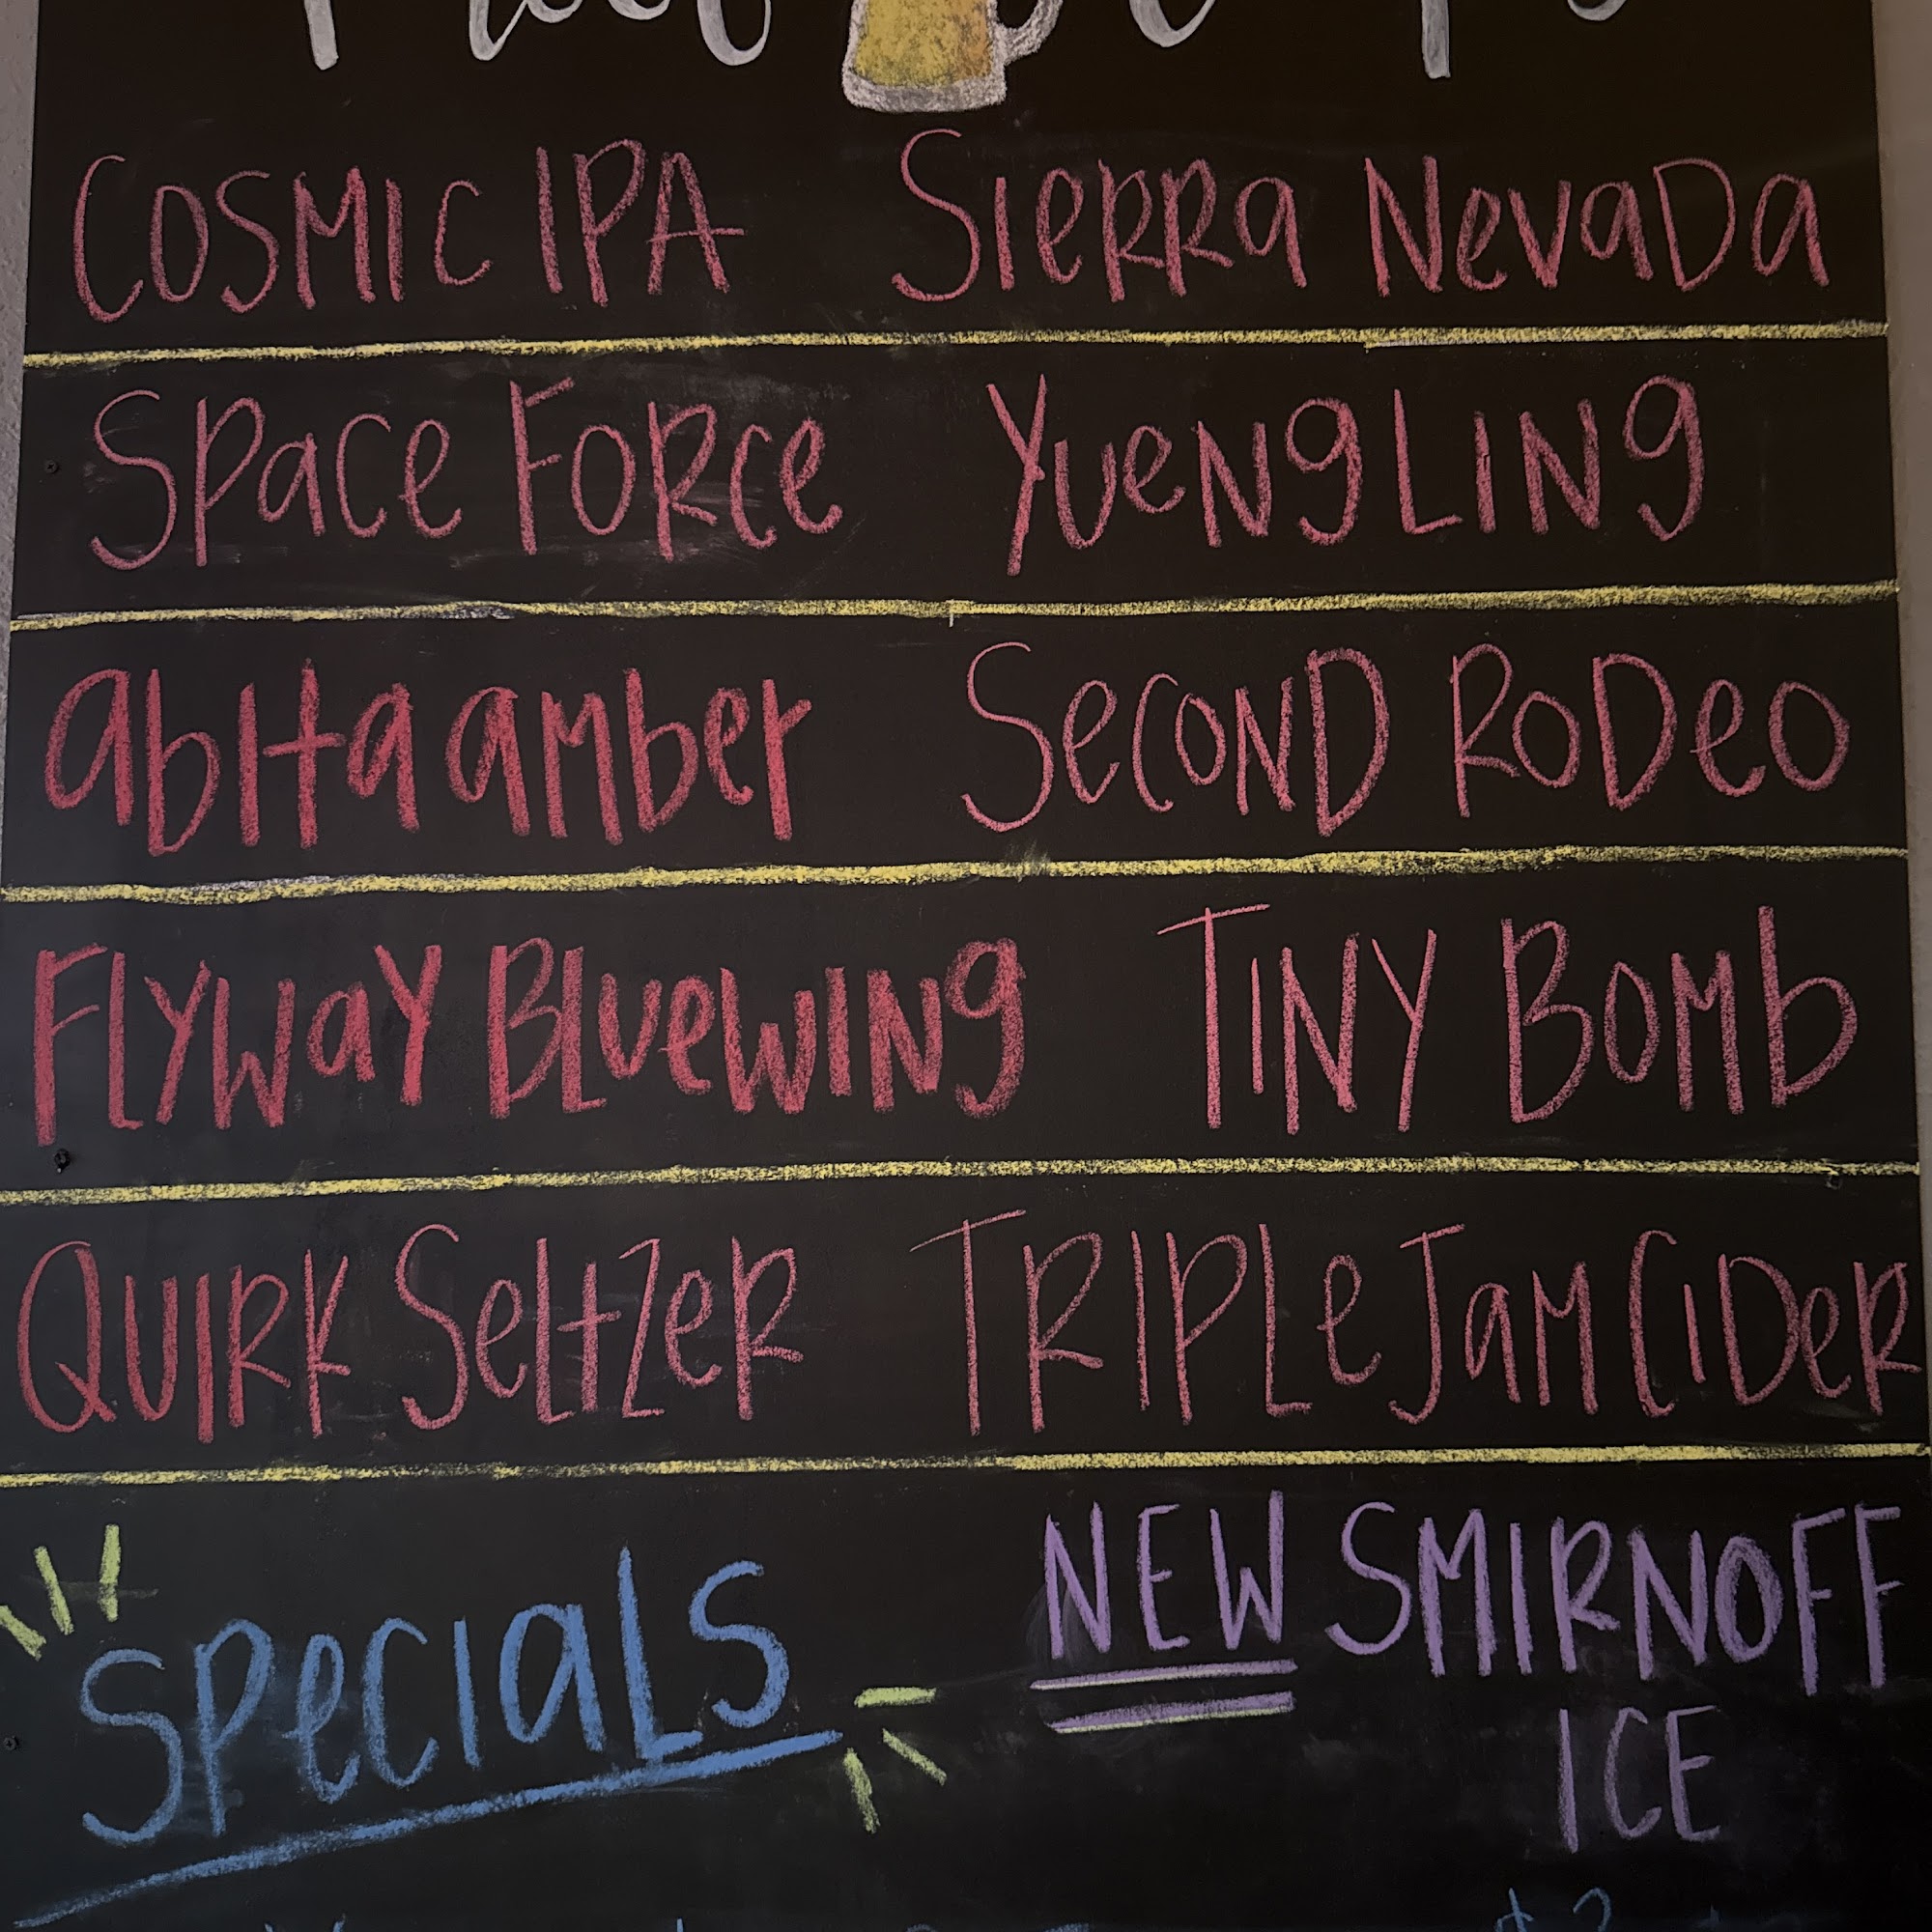 COSMIC IPA Sierra Nevada
Space Force Yuengling
abita amber Second Rodeo
Flyway Bluewing Tiny Bomb
Quirk Seltzer Triple Jam Cider
Specials NEW SMIRNOFF
ICE